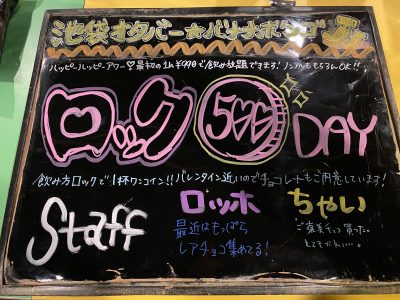 池袋オタバー★バナナボンゴJr.
ハッピーハッピーアワー♡最初の1h¥990で飲み放題できます!ノンアルももちろんOK!!
ロック 500 DAY
飲み方ロックで1杯ワンコイン!!バレンタイン近いのでチョコレートもご用意しています!
Staff
ロッホ
最近はもっぱら
レアチョコ集めてる!
ちゃい
ご褒美チョコ買った。
とてもかわいい。